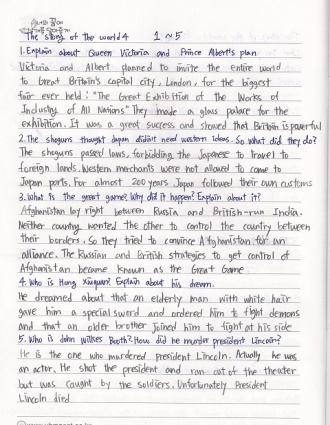 The story of the world 4 1~5
1. Explain about Queen Victoria and Prince Albert's plan
Victoria and Albert planned to invite the entire world
to Great Britain's capital city, London, for the biggest
fair ever held: "The Great Exhibition of the Works of
Industry of All Nations" They made a glass palace for the
exhibition. It was a great success and showed that Britain is powerful
2. The shoguns thought Japan didn't need western ideas. So what did they do?
The shoguns passed laws, forbidding the Japanese to travel to
foreign lands. Western merchants were not allowed to come to
Japan ports. For almost 200 years Japan followed their own customs
3. What is the great game? Why did it happen? Explain about it?
Afghanistan lay right between Russia and British-run India.
Neither country wanted the other to control the country between
their borders. So they tried to convince Afghanistan for an
alliance. The Russian and British strategies to get control of
Afghanistan became known as the Great Game
4. Who is Hong Xiuquan? Explain about his dream.
He dreamed about that an elderly man with white hair
gave him a special sword and ordered him to fight demons
and that an older brother joined him to fight at his side
5. Who is John Wilkes Booth? How did he murder president Lincoln?
He is the one who murdered president Lincoln. Actually he was
an actor. He shot the president and ran out of the theater
but was caught by the soldiers. Unfortunately President
Lincoln died